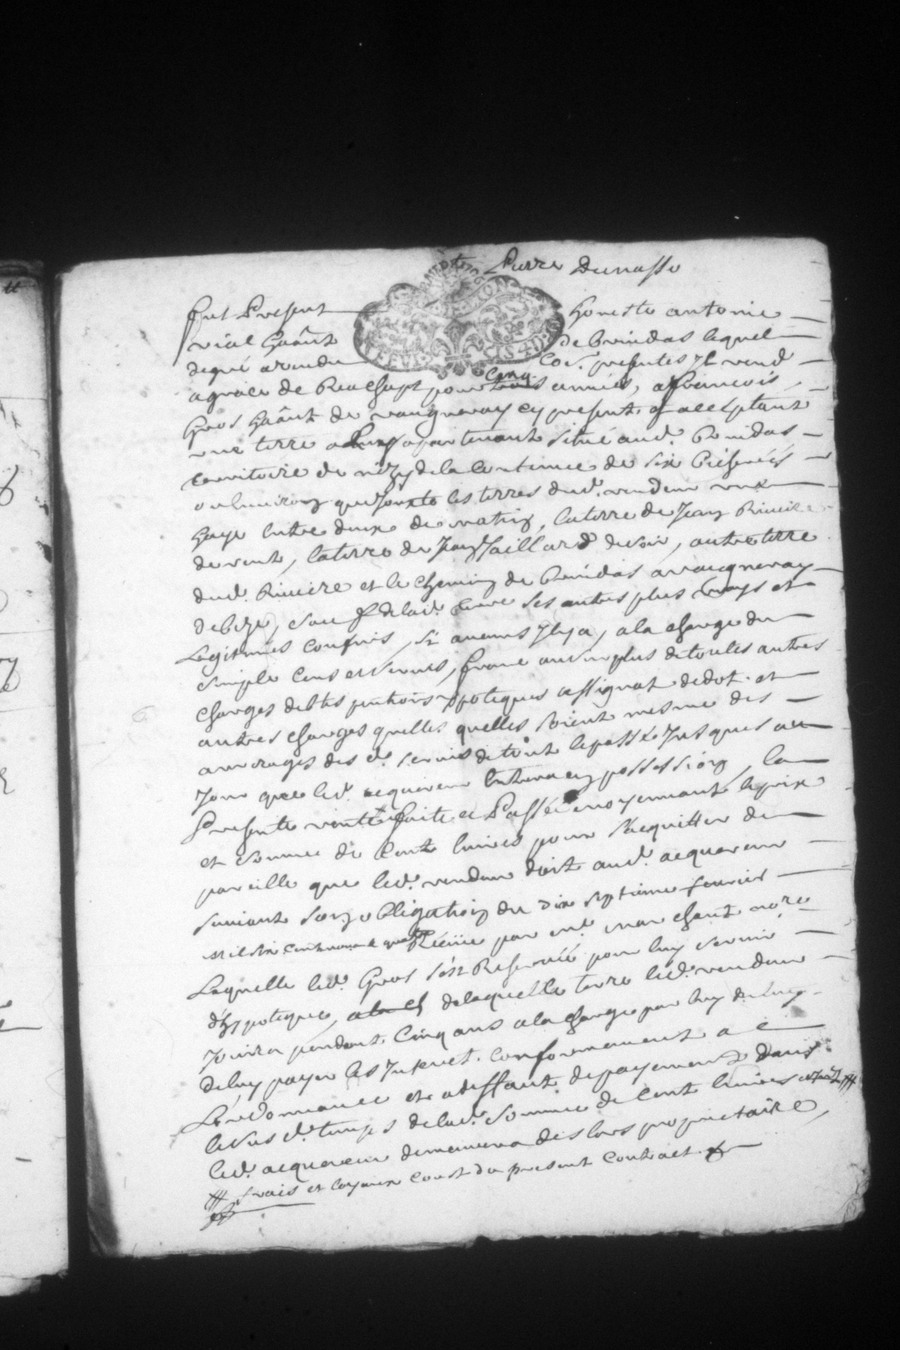 Pierre Dumasse
fut Present honeste antoine
vial habitant de brindas lequel
de gré a vendu ces. presentes Il vend
agrace de Reachapt pour cinq années, a françois
Gros habitant de vaugneray cy present et acceptant
une terre a luy apartenant situé aud. brindas
territoire de de la contenue de six bicherées
ou environ que Jouxte les terres dud. vendeur une
haye entre deux de matin, la terre de Jean Riviere
de vent, la terre de Jean Gaillard de soir, autre terre
dud. Riviere et le chemin de brindas a vaugneray
de bize, sauf de lad. terre ses autres plus vrays et
Legitimes confins, si aucuns Il y a, a la charge du
simple cens et servis, franc au surplus de toutes autres
charges debtes pentions ypoteques assignat de dot et
autres charges quelles quelles soient mesme des
arrerages des d. servis de tout le passé Jusques au
Jour que led. acquereur entrera en possession, la
Presente vente faite et Passée moyennant le prix
et somme de Cent livres pour s'acquitter de
pareille que led. vendeur doit aud. acquereur
suivant son obligation du dix septieme fevrier
mil sept cent Receüe par me marchant nore
Laquelle led. Gros s'est Reservée pour luy servir
d'hypoteque, de laquelle terre led. vendeur
Jouira pendant Cinq ans a la charge par luy
de luy payer les Interet. conformement a
L'ordonnance et a deffaut de payement dans
lesus d. temps de lad. somme de Cent livres
led. acquereur demeurera des lors proprietaire
frais et loyaux coust du present Contract